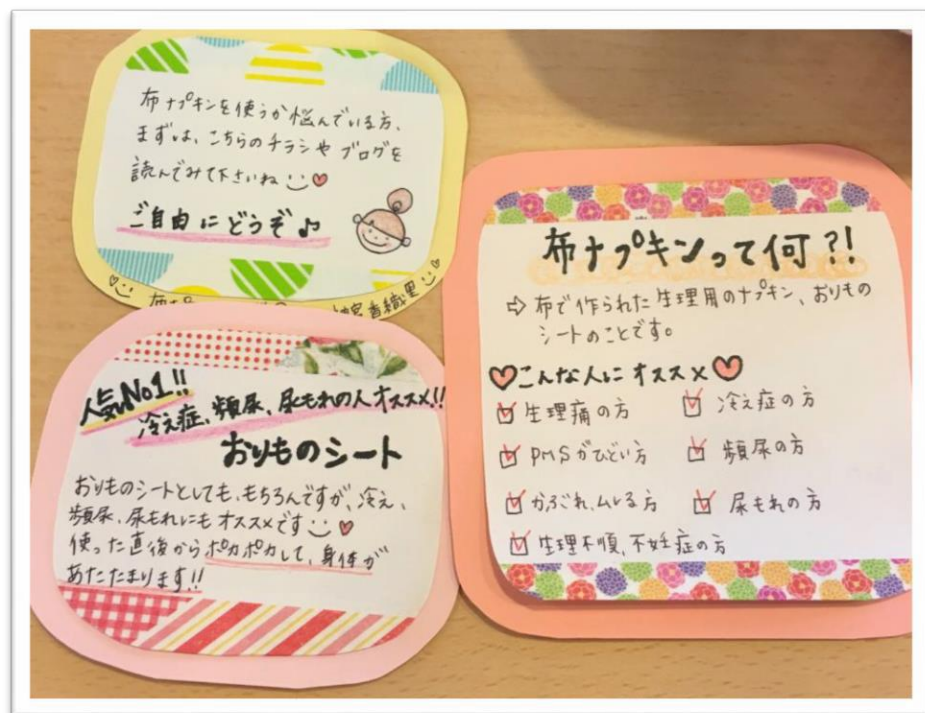 布ナプキンを使うか悩んでいる方、
まずは、こちらのチラシやブログを
読んでみて下さいね
ご自由にどうぞ♪
香織里
人気No1!!
冷え症、頻尿、尿もれの人オススメ!!
おりものシート
おりものシートとしても、もちろんですが、冷え、
頻尿、尿もれにもオススメです
使った直後からポカポカして、身体が
あたたまります!!
布ナプキンって何?!
⇨ 布で作られた生理用のナプキン、おりもの
シートのことです。
♡こんな人にオススメ♡
☑ 生理痛の方 ☑ 冷え症の方
☑ PMSがひどい方 ☑ 頻尿の方
☑ かぶれ、ムレる方 ☑ 尿もれの方
☑ 生理不順、不妊症の方